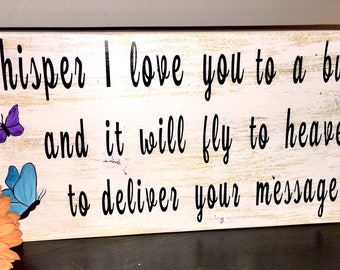 hisper I love you to a bu
and it will fly to heave
to deliver your message